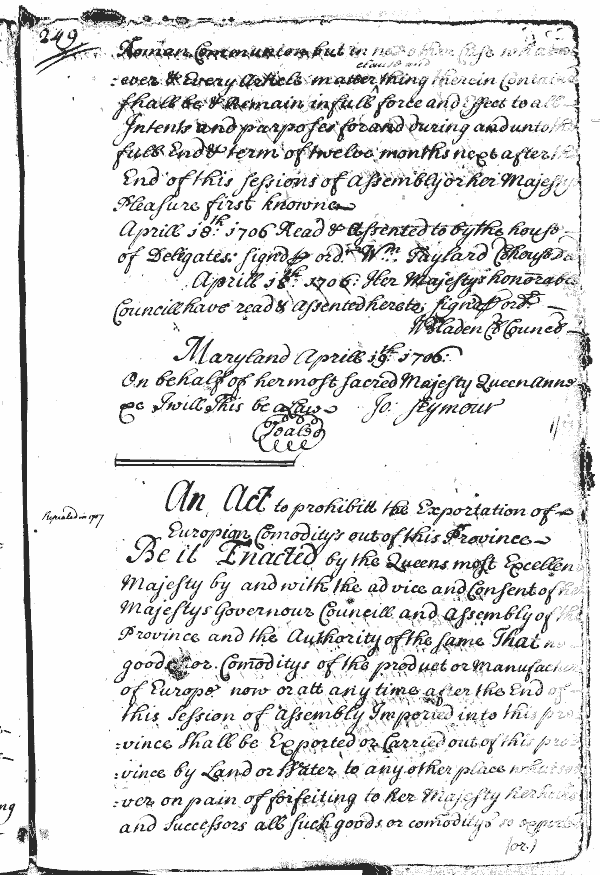 249
Roman Communion but in no other Case whatso
:ever & Every Article matter thing therein Contained
clause and
shall be & Remain in full force and Effect to all
Intents and purposes for and during and unto the
full End & term of twelve months next after the
End of this sessions of Assembly or her Majestys
Pleasure first knowne
Aprill 18th 1706 Read & Assented to by the house
of Deligates: signed p ordr Wm. Taylard Cl house Del
Aprill 18th 1706: Her Majestys honorable
Councill have read & Assented hereto; signed p ordr
W Bladen Cl Councl
Maryland Aprill 19th 1706:
On behalf of her most sacred Majesty Queen Anne
&c I will This be a Law Jo: Seymour
Seale
Repealed in 1707
An Act to prohibitt the Exportation of
Europian Comoditys out of this Province
Be it Enacted by the Queens most Excellent
Majesty by and with the advice and Consent of her
Majestys Governour Councill and Assembly of the
Province and the Authority of the same That no
goods or Comoditys of the product or manufacture
of Europe now or att any time after the End of
this Session of Assembly Imported into this pro
:vince Shall be Exported or Carried out of this pro
:vince by Land or Water to any other place whatsoe
:ver on pain of forfeiting to her Majesty her heires
and Successors all such goods or comoditys so exported
(or.)